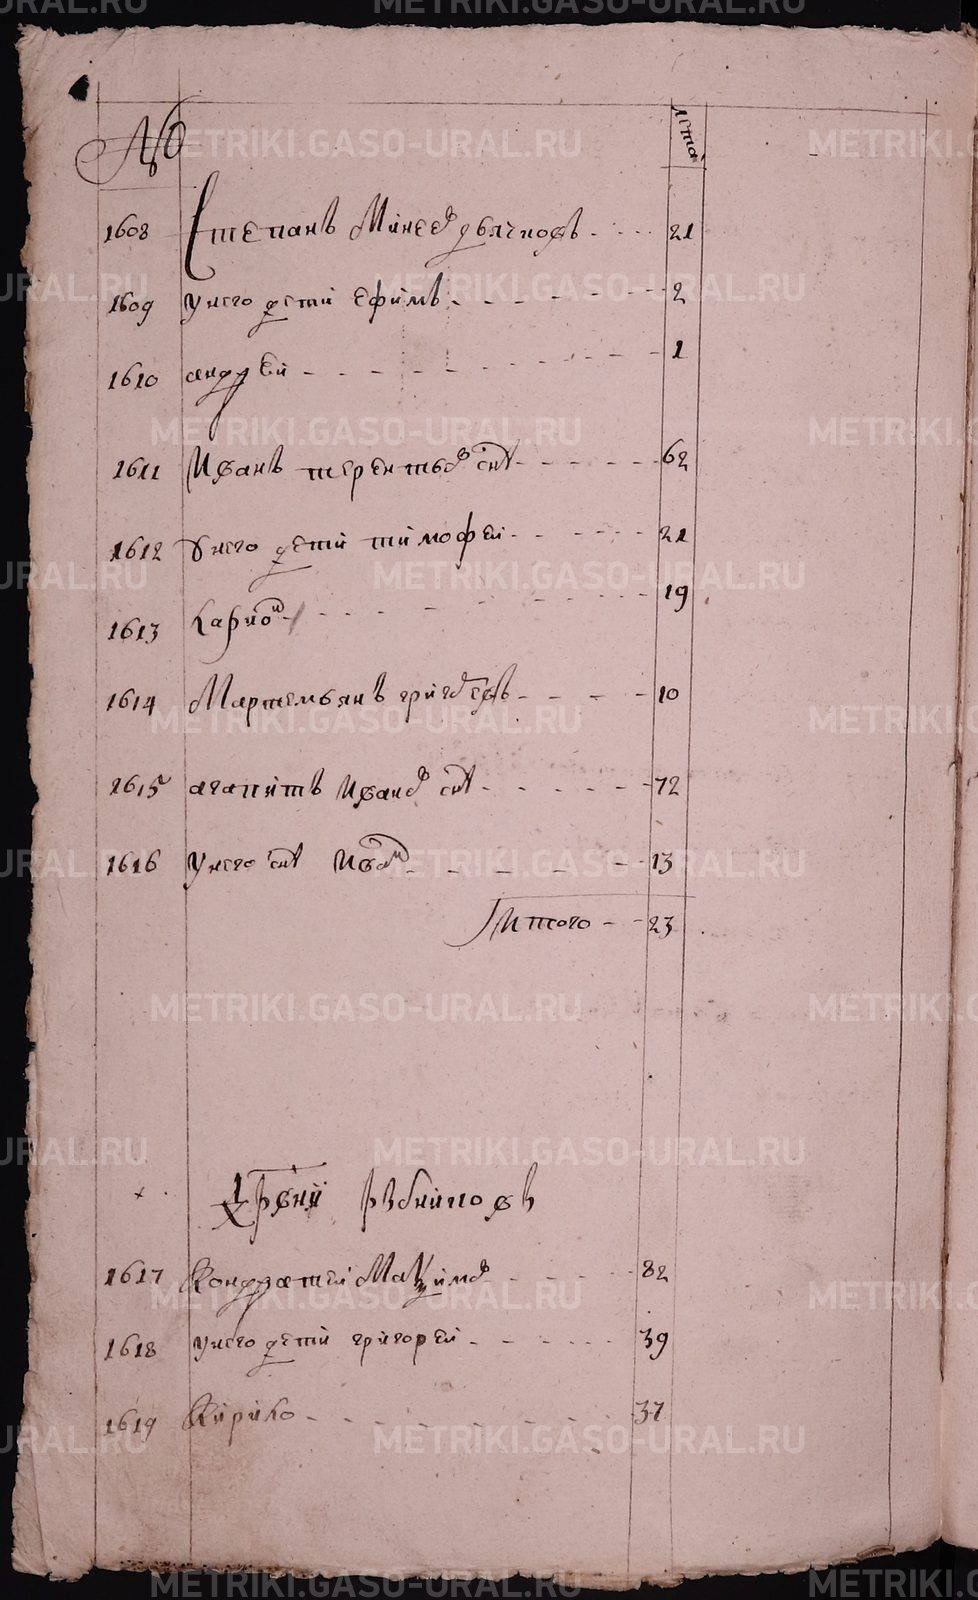 № лета
1608 Степанъ Минеев дьячковъ 21
1609 у него дети ефимъ 2
1610 андрей 1
1611 Иванъ терентьев снъ 62
1612 у него дети тимофей 21
1613 ларион 19
1614 Мартемьянъ григорьевъ 10
1615 агапитъ Иванов снъ 72
1616 у него снъ Иван 13
Итого 23
Дрвни рябинновъ
1617 Кондратей Максимов 82
1618 у него дети григорей 39
1619 Кирило 37
METRIKI.GASO-URAL.RU